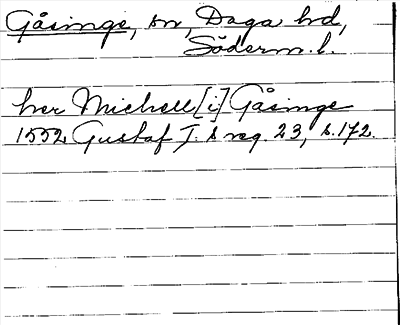 Gåsinge, sn, Daga hd,
Söderm. l.
her Michell [i] Gåsinge
1552 Gustaf I:s reg. 23, s. 172.